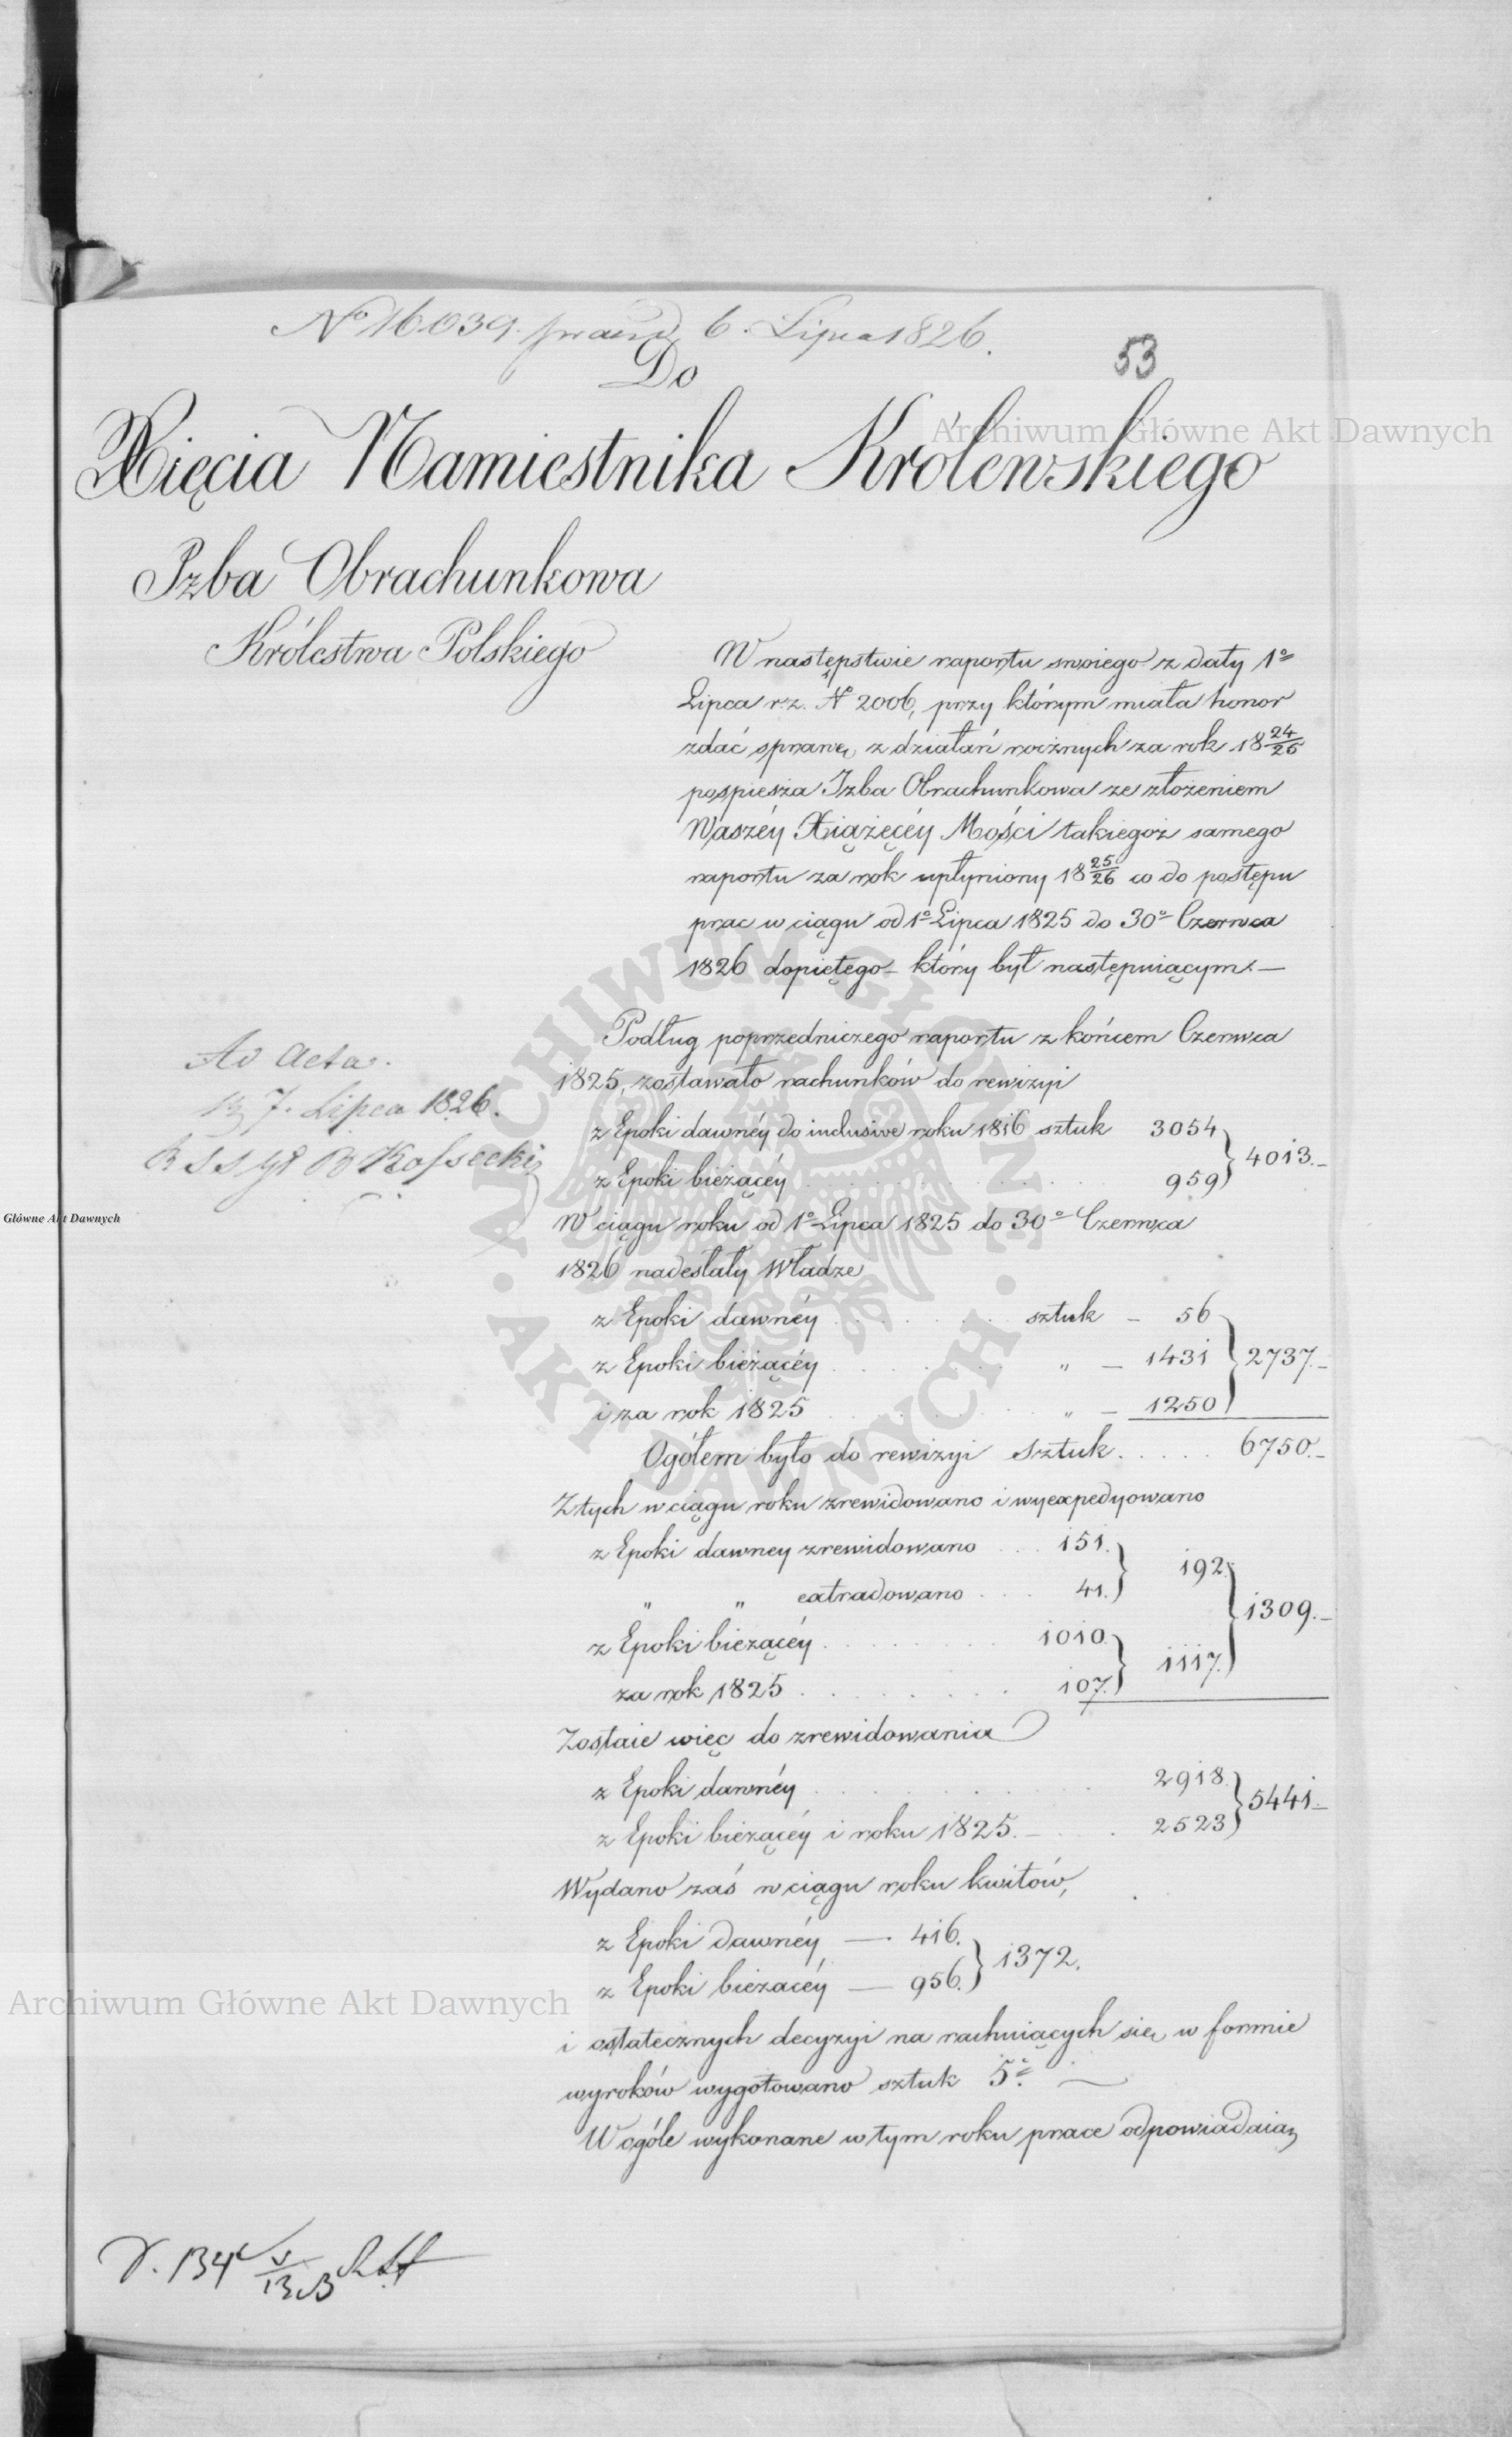 No 16039. praes. 6. Lipca 1826.
53
Do
Xięcia Namiestnika Królewskiego
Izba Obrachunkowa
Królestwa Polskiego
W następstwie raportu swoiego z daty 1º
Lipca r. z. No 2006, przy którym miała honor
zdać sprawę z działań rocznych za rok 18 24/25
pospiesza Izba Obrachunkowa ze złożeniem
Waszéy Xiążęcéy Mości takiegoż samego
raportu za rok upłyniony 18 25/26 co do postępu
prac w ciągu od 1º Lipca 1825 do 30º Czerwca
1826 dopiętego - który był następuiącym. —
Podług poprzedniczego raportu z końcem Czerwca
1825, zostawało rachunków do rewizyi
z Epoki dawnéy do inclusive roku 1816 sztuk 3054 } 4013. -
z Epoki bieżącéy . . . . . . . . 959
W ciągu roku od 1º Lipca 1825 do 30º Czerwca
1826 nadesłały Władze
z Epoki dawnéy . . . . . . sztuk - 56
z Epoki bieżącéy . . . . . . „ - 1431 } 2737. -
i za rok 1825 . . . . . . „ - 1250
Ogółem było do rewizyi Sztuk . . . . . 6750. -
Z tych w ciągu roku zrewidowano i wyexpedyowano
z Epoki dawney zrewidowano . . . 151. } 192.
„ „ extradowano . . . 41.
} 1309. -
z Epoki bieżącéy . . . . . . . . 1010. } 1117.
za rok 1825 . . . . . . . . 107.
Zostaie więc do zrewidowania
z Epoki dawnéy . . . . . . . 2918. } 5441. -
z Epoki bieżącéy i roku 1825. - . . . 2523
Wydano zaś w ciągu roku kwitów,
z Epoki dawnéy —. 416. } 1372.
z Epoki bieżacéy — 956.
i ostatecznych decyzyi na rachuiących się w formie
wyroków wygotowano sztuk 5. —
W ogóle wykonane w tym roku prace odpowiadaią
Ad Acta.
7. Lipca 1826.
Kossecki
Archiwum Główne Akt Dawnych
Główne Akt Dawnych
ARCHIWUM GŁÓWNE · AKT DAWNYCH ·
Archiwum Główne Akt Dawnych